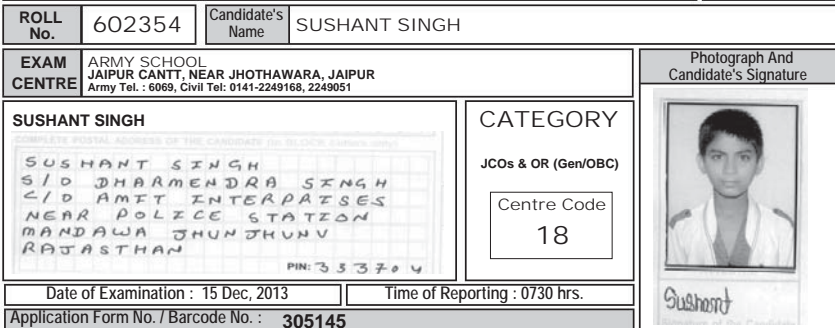 ROLL No. 602354 Candidate's Name SUSHANT SINGH
EXAM CENTRE ARMY SCHOOL
JAIPUR CANTT, NEAR JHOTHAWARA, JAIPUR
Army Tel. : 6069, Civil Tel: 0141-2249168, 2249051
Photograph And
Candidate's Signature
SUSHANT SINGH
COMPLETE POSTAL ADDRESS OF THE CANDIDATE (In BLOCK letters only)
SUSHANT SINGH
S/O DHARMENDRA SINGH
C/O AMIT INTERPRISES
NEAR POLICE STATION
MANDAWA JHUNJHUNV
RAJASTHAN
PIN: 333704
CATEGORY
JCOs & OR (Gen/OBC)
Centre Code
18
Sushant
Signature of the Candidate
Date of Examination : 15 Dec, 2013 Time of Reporting : 0730 hrs.
Application Form No. / Barcode No. : 305145